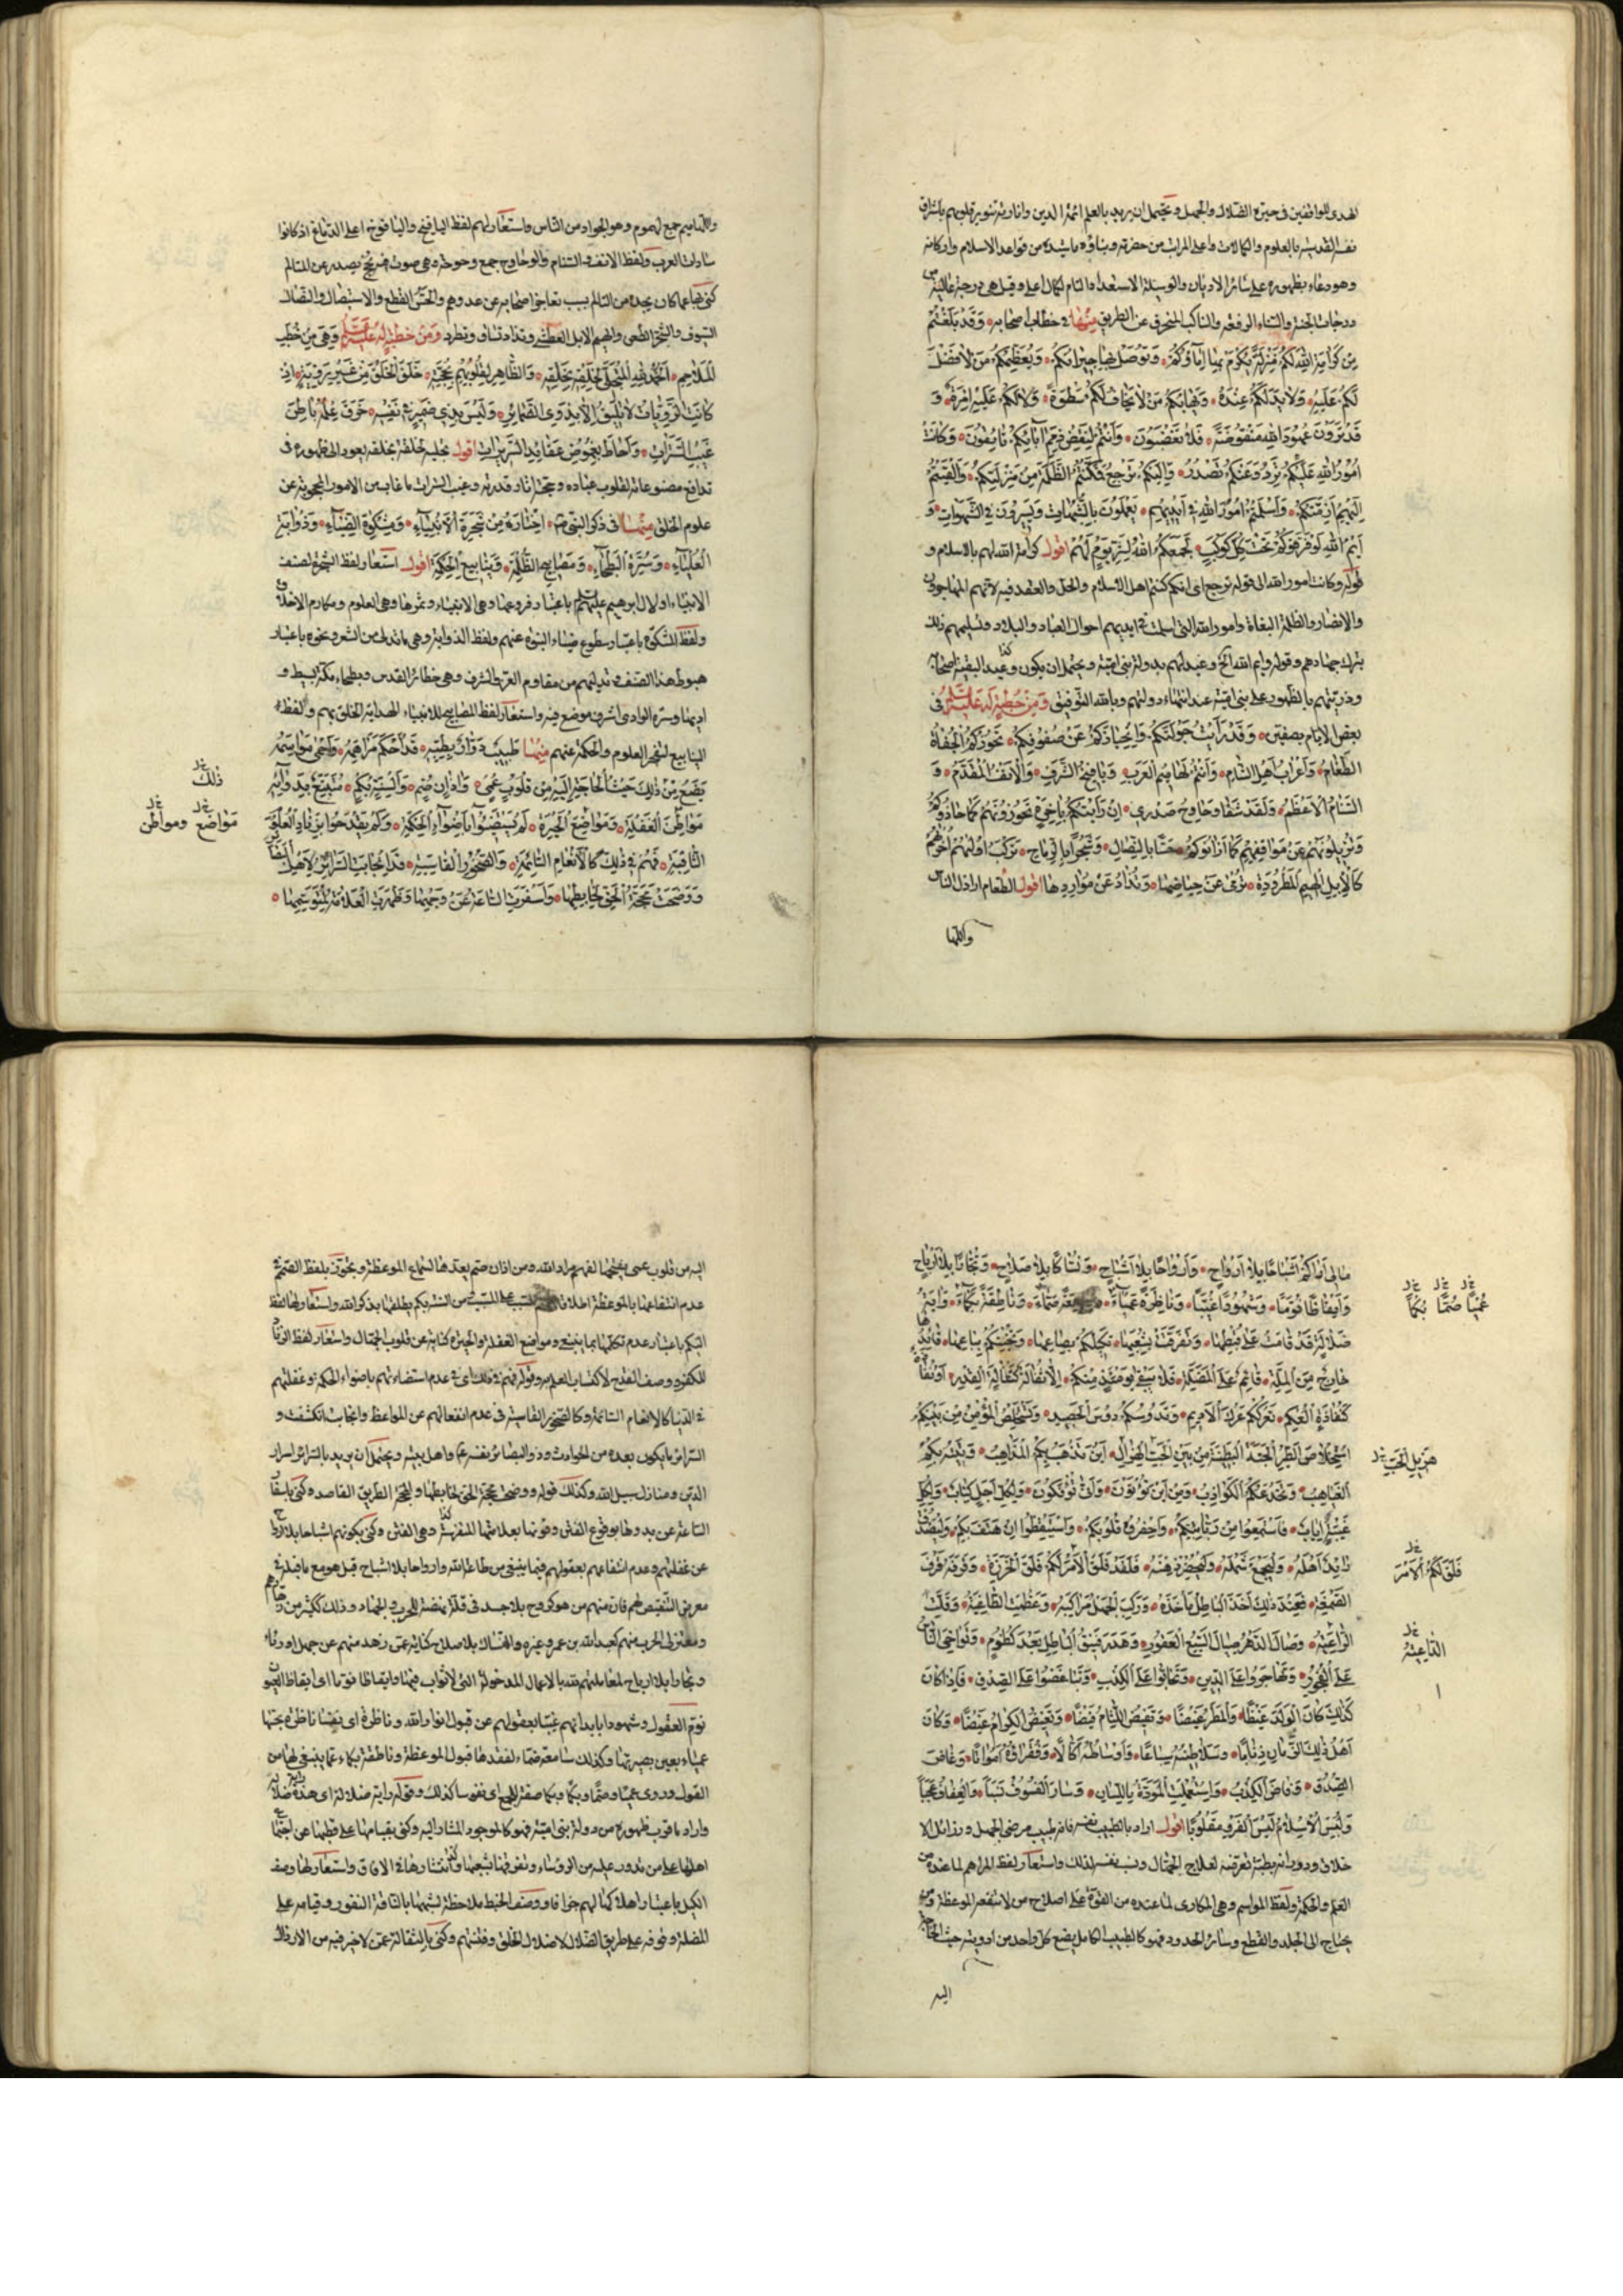 لهدى للواقفين فى حيرة الضلال والجهل ويحتمل ان يريد بالعلم ائمة الدين وانارته تنوير قلوبهم باشراق
نفسه القدسيه بالعلوم والكمالات واعلى المراتب من حضرته وبناؤه ما شيده من قواعد الاسلام واركانه
وهو دعاء بظهوره على سائر الاديان والوسيلة الاستعداد التام لكمال اعلى وقيل هى درجة عالية من
درجات الجنة والسناء الرفعة والناكب المنحرف عن الطريق منها فى خطاب اصحابه وقد بلغتم
من كرامة الله لكم منزلة تكرم بها اماؤكم وتوصل بها جيرانكم ويعظمكم من لا فضل
لكم عليه ولا يد لكم عنده ويهابكم من لا يخاف لكم سطوة ولا لكم عليه امرة و
قد ترون عهود الله منقوضة فلا تغضبون وانتم لنقض ذمم آبائكم تأنفون وكانت
امور الله عليكم ترد وعنكم تصدر واليكم ترجع فمكنتم الظلمة من منزلتكم والقيتم
اليهم ازمتكم واسلمتم امور الله فى ايديهم يعملون بالشبهات ويسيرون فى الشهوات و
ايم الله لو فرقوكم تحت كل كوكب لجمعكم الله لشر يوم لهم اقول كرامة الله لهم بالاسلام و
قوله وكانت امور الله الى قوله ترجع اى انكم كنتم اهل الاسلام والحل والعقد فيه لانهم المهاجرون
والانصار والظلمة البغاة وامور الله التى اسلمت فى ايديهم احوال العباد والبلاد وتسليمهم ذلك
بترك جهادهم وقوله وايم الله الخ وعيد لهم بدولة بنى امية ويحتمل ان يكون وعيد البقية اصحابه
وذريتهم بالظهور على بنى امية عند انتهاء دولتهم وبالله التوفيق ومن خطبة له عليه السلم فى
بعض الايام بصفين وقد رايت جولتكم وانحيازكم عن صفوفكم تحوزكم الجفاة
الطغام واعراب اهل الشام وانتم لهاميم العرب ويآفيخ الشرف والانف المقدم و
السنام الاعظم ولقد شفا وحاوح صدرى ان رايتكم باخرة تحوزونهم كما حازوكم
وتزيلونهم عن مواقفهم كما ازالوكم حسا بالنصال وشجرا بالرماح تركب اولهم اخرهم
كالابل الهيم المطرودة ترمى عن حياضها وتذاد عن مواردها اقول الطغام اراذل الناس
واللها
واللهاميم جمع لهموم وهو الجواد من الناس واستعار لهم لفظ اليافيخ واليافوخ اعلى الدماغ اذ كانوا
سادات العرب ولفظ الانف والسنام والوحاوح جمع وحوحه وهى صوت فيه بحح يصدر عن المتالم
كنى بها عما كان يجده من التالم بسبب تعاجز اصحابه عن عدوهم والحس القطع والاستيصال والنصال
السيوف والشجر الطعن والهيم الابل العطشى وتذاد تساق وتطرد ومن خطبة له عليه السلم وهى من خطب
الملاحم الحمد لله المتجلى لخلقه بخلقه والظاهر لقلوبهم بحجته خلق الخلق من غير روية اذ
كانت الرويات لا تليق الا بذوى الضمائر وليس بذى ضمير فى نفسه خرق علمه باطن
غيب السترات واحاط بغموض عقائد السريرات اقول تجليه لخلقه بخلقه يعود الى ظهوره فى
بدايع مصنوعاته لقلوب عباده وحجته اثار قدرته وغيب السترات ما غاب من الامور المحجوبة عن
علوم الخلق منها فى ذكر النبى ص اختاره من شجرة الانبياء ومشكوة الضياء وذؤابة
العلياء وسرة البطحاء ومصابيح الظلمة وينابيع الحكمة اقول استعار لفظ الشجرة لصنف
الانبياء او لآل ابرهيم عليهم السلم باعتبار فروعها وهى الانبياء وثمرها وهى العلوم ومكارم الاخلاق
ولفظ المشكوة باعتبار سطوع ضياء النبوة عنهم ولفظ الذوابة وهى ما تدلى من الشعر ونحوه باعتبار
هبوط هذا الصنف فى تدليهم من مقاوم العز والشرف وهى حظائر القدس وبطحاء مكة بسيط و
اديمها وسرة الوادى اشرف موضع فيه واستعار لفظ المصابيح للانبياء لهداية الخلق بهم ولفظ
الينابيع لتفجر العلوم والحكمة عنهم منها طبيب دوار بطبه قد احكم مراهمه واحمى مواسمه
يضع من ذلك حيث الحاجة اليه من قلوب عمى واذان صم والسنة بكم متتبع بدوائه
مواطن الغفلة ومواضع الحيرة لم يستضيئوا باضواء الحكمة ولم يقدحوا بزناد العلوم
الثاقبة فهم فى ذلك كالانعام السائمة والصخور القاسية قد انجابت السرائر لاهل البصائر
ووضحت محجة الحق لخابطها واسفرت الساعة عن وجهها وظهرت العلامة لمتوسمها
ذلك
مواضع ومواطن
مالى اراكم اشباحا بلا ارواح وارواحا بلا اشباح ونساكا بلا صلاح وتجارا بلا ارباح
وايقاظا نوما وشهودا غيبا وناظرة عمياء وسامعة صماء وناطقة بكماء راية
ضلالة قد قامت على قطبها وتفرقت بشعبها تكيلكم بصاعها وتخبطكم بباعها قائدها
خارج من الملة قائم على الضلة فلا يبقى يومئذ منكم الا ثفالة كثفالة القدر او نفاضة
كنفاضة العكم تعرككم عرك الاديم وتدوسكم دوس الحصيد وتستخلص المؤمن من بينكم
استخلاص الطير الحبة البطينة من بين هزيل الحب اين تذهب بكم المذاهب وتتيه بكم
الغياهب وتخدعكم الكواذب ومن اين تؤتون وانى تؤفكون ولكل اجل كتاب ولكل
غيبة اياب فاستمعوا من ربانيكم واحضروه قلوبكم واستيقظوا ان هتف بكم وليصدق
رائد اهله وليجمع شمله وليحضر ذهنه فلقد فلق لكم الامر فلق الخرزة وقرفه قرف
الصمغة فعند ذلك اخذ الباطل مآخذه وركب الجهل مراكبه وعظمت الطاغية وقلت
الراعية وصال الدهر صيال السبع العقور وهدر فنيق الباطل بعد كظوم وتواخى الناس
على الفجور وتهاجروا على الدين وتحابوا على الكذب وتباغضوا على الصدق فاذا كان
ذلك كان الولد غيظا والمطر قيظا وتفيض اللئام فيضا وتغيض الكرام غيضا وكان
اهل ذلك الزمان ذئابا وسلاطينه سباعا واوساطه اكالا وفقراؤه امواتا وغاض
الصدق وفاض الكذب واستعملت المودة باللسان وتشاجر الناس بالقلوب وصار الفسوق نسبا والعفاف عجبا
ولبس الاسلام لبس الفرو مقلوبا اقول اراد بالطبيب نفسه فانه طبيب مرضى الجهل ورذائل الا
خلاق ودورانه بطبه تعرضه لعلاج الجهال ونصب نفسه لذلك واستعار لفظ المراهم لما عنده من
العلم والحكمة ولفظ المواسم وهى المكاوى لما عنده من القوة على اصلاح من لا تنفعه الموعظة ومن
يحتاج الى الجلد والقطع وسائر الحدود فهو كالطبيب الكامل يضع كل واحد من ادويته حيث الحاجة
اليه
عميا صما بكما
هزيل الحب
فلق لكم الامر
الداعية
اليه من قلوب عمى يفتحها لفهم مراد الله ومن اذان صم يعدها لسماع الموعظة وتجوز بلفظ الصمم فى
عدم انتفاعها بالموعظة اطلاقا لاسم السبب على المسبب ومن السنة بكم يطلقها بذكر الله واستعار لها لفظ
البكم باعتبار عدم تكلمها بما ينبغى ومواضع الغفلة والحيرة كناية عن قلوب الجهال واستعار لفظ الزناد
للفكر ووصف القدح لاكتساب العلم به وقوله فهم فى ذلك اى فى عدم استضاءتهم باضواء الحكمة وغفلتهم
فى الدنيا كالانعام السائمة وكالصخور القاسية فى عدم انفعالهم عن المواعظ وانجابت انكشفت و
السرائر ما يكون بعده من الحوادث وذو البصائر نفسه ع واهل بيته ويحتمل ان يريد بالسرائر اسرار
الدين ومنازل سبيل الله وكذلك قوله ووضحت محجة الحق لخابطها والمحجة الطريق القاصده وكنى باسفار
الساعة عن بدوها بوقوع الفتن ودنوها بعلاماتها المتفرسة وهى الفتن وكنى بكونهم اشباحا بلا ارواح
عن غفلتهم وعدم انتفاعهم بعقولهم فيما ينبغى من طاعة الله وارواحا بلا اشباح قيل هو مع ما قبله فى
معرض التنقيص لهم فان منهم من هو كروح بلا جسد فى قلة نهضته للحرب والجهاد وذلك ككثير من زهادهم
ومعتزلى الحرب منهم كعبد الله بن عمر وغيره والنساك بلا صلاح كناية عن زهد منهم عن جهل او رئاء
وتجارا بلا ارباح لمعاملتهم لله بالاعمال المدخولة التى لا ثواب فيها وايقاظا نوما اى ايقاظ العيون
نوم العقول وشهودا بابدانهم غيبا بعقولهم عن قبول انوار الله وناظرة اى نفسا ناظرة بحسها
عمياء بعين بصيرتها وكذلك سامعة صماء لفقدها قبول الموعظة وناطقة بكماء عما ينبغى لها من
القول وروى عميا وصما وبكما صفة للجمع اى نفوسا كذلك وقوله راية ضلالة اى هذه راية ضلالة
واراد ما قرب ظهوره من دولة بنى امية فهو كالموجود المشار اليه وكنى بقيامها على قطبها عن اجتماع
اهلها على من تدور عليه من الرؤساء وتفرقها بشعبها وانتشارها فى الافاق واستعار لها وصف
الكيل باعتبار اهلاكها لهم جزافا ووصف الخبط ملاحظة لشبهها بالناقة النفور وقيامه على
الضلة وقوفه على طريق الضلال لاضلال الخلق وفتنتهم وكنى بالثفالة عمن لا خير فيه من الارذال